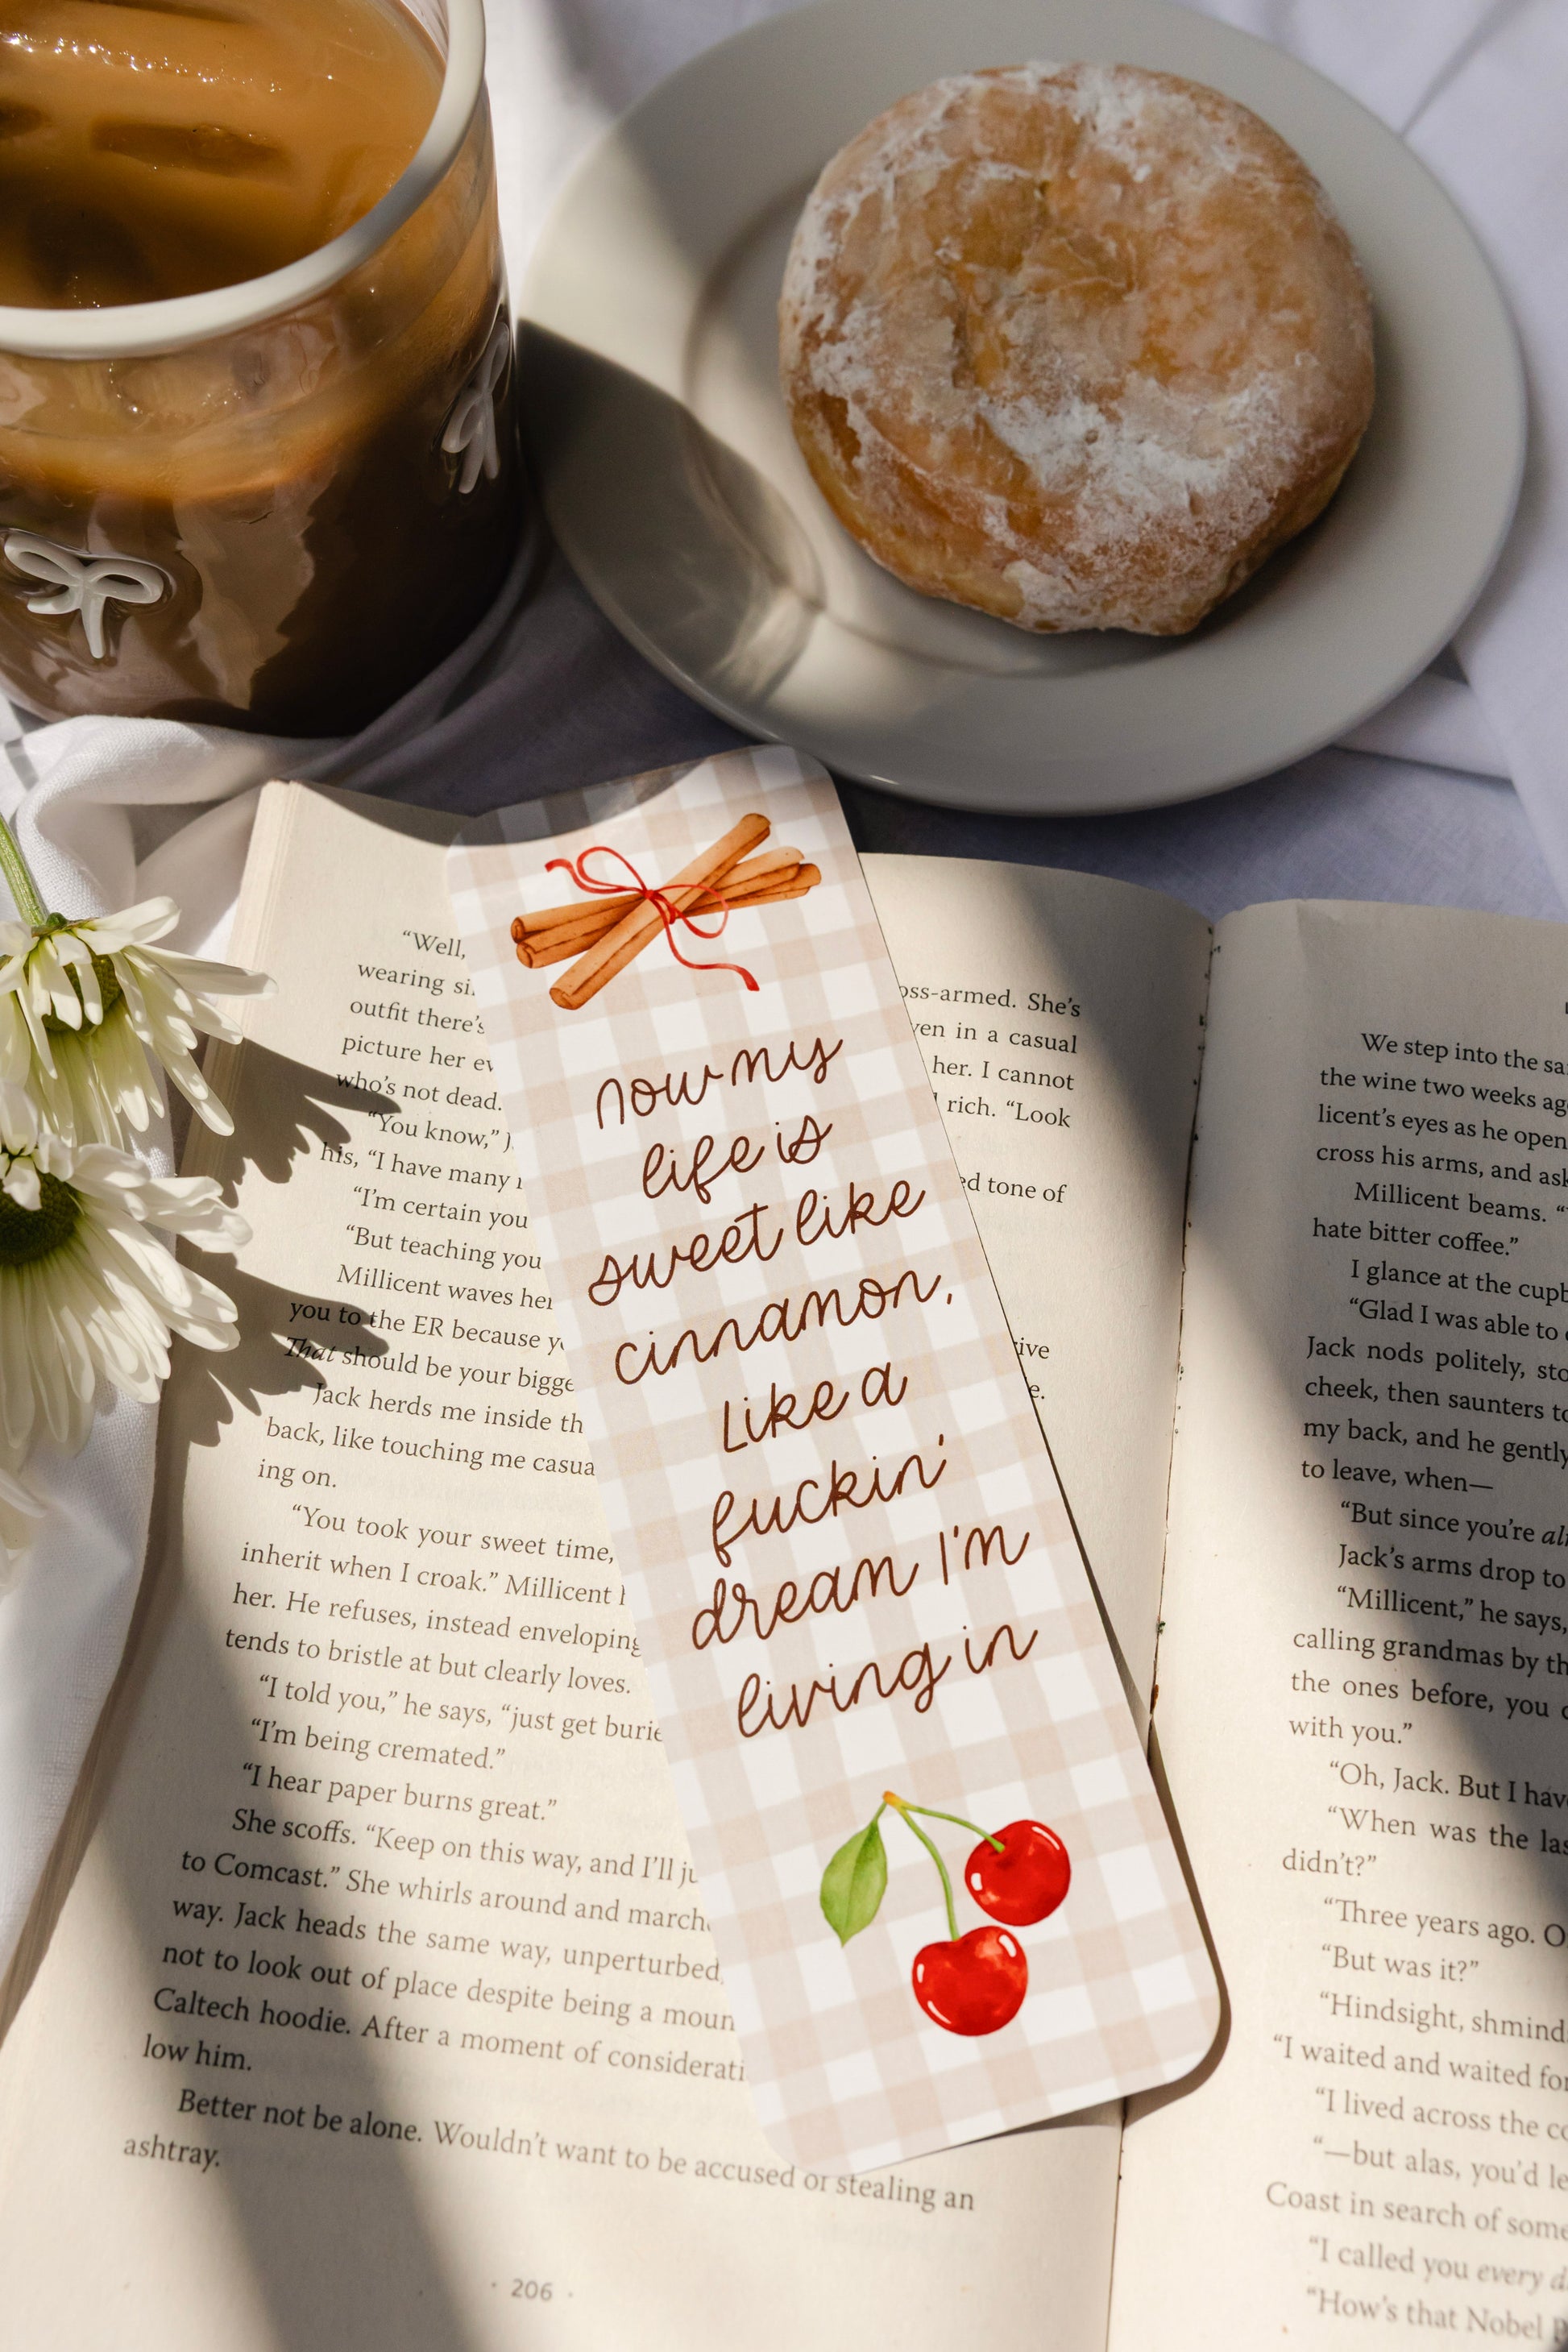 now my
life is
sweet like
cinnamon,
Like a
fuckin'
dream I'm
living in
“Well,
wearing
outfit there's
picture her
who's not dead.
“You know,”
his, “I have many
“I'm certain you
“But teaching you
Millicent waves her
you to the ER because
That should be your
Jack herds me inside
back, like touching me
ing on.
“You took your sweet time,
inherit when I croak.” Millicent
her. He refuses, instead enveloping
tends to bristle at but clearly loves.
“I told you,” he says, “just get
“I'm being cremated.”
“I hear paper burns great.”
She scoffs. “Keep on this way, and I'll
to Comcast.” She whirls around and
way. Jack heads the same way, unperturbed,
not to look out of place despite being a
Caltech hoodie. After a moment of
low him.
Better not be alone. Wouldn't want to be accused of stealing an
ashtray.
oss-armed. She's
in a casual
her. I cannot
rich. “Look
tone of
· 206 ·
We step into the
the wine two weeks
licent's eyes as he
cross his arms, and
Millicent beams.
hate bitter coffee.”
I glance at the
“Glad I was able to
Jack nods politely,
cheek, then saunters
my back, and he gently
to leave, when—
“But since you're
Jack's arms drop to
“Millicent,” he says,
calling grandmas by
the ones before, you
with you.”
“Oh, Jack. But I
“When was the
didn't?”
“Three years ago.
“But was it?”
“Hindsight,
“I waited and waited
“I lived across the
“—but alas, you'd
Coast in search of
“I called you every
“How's that Nobel